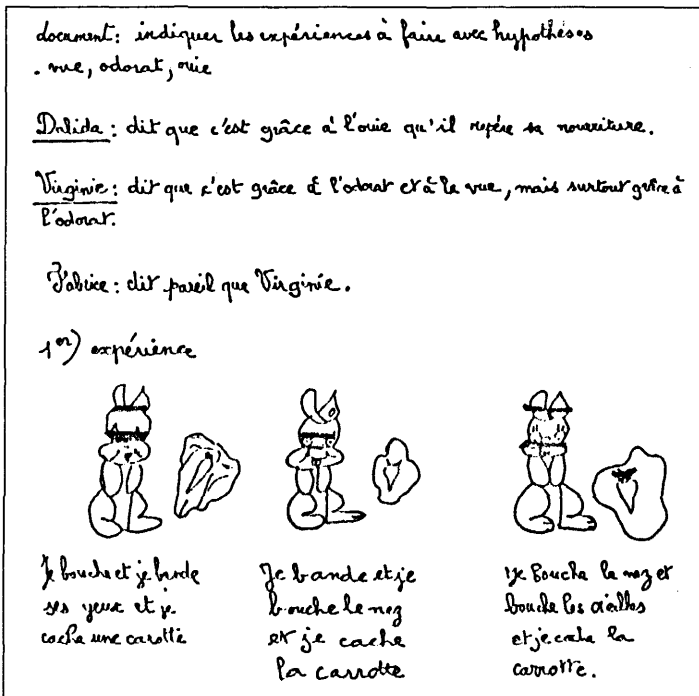 document: indiquer les expériences à faire avec hypothéses
. vue, odorat, ouie
Dalida: dit que c'est grâce à l'ouie qu'il repére sa nourriture.
Virginie: dit que c'est grâce à l'odorat et à la vue, mais surtout grâce à
l'odorat.
Fabrice: dit pareil que Virginie.
1er) expérience
Je bouche et je bande
ses yeux et je
cache une carotte
Je bande et je
bouche le nez
et je cache
la carrotte
Je Bouche le nez et
bouche les oreilles
et je cache la
carrotte.